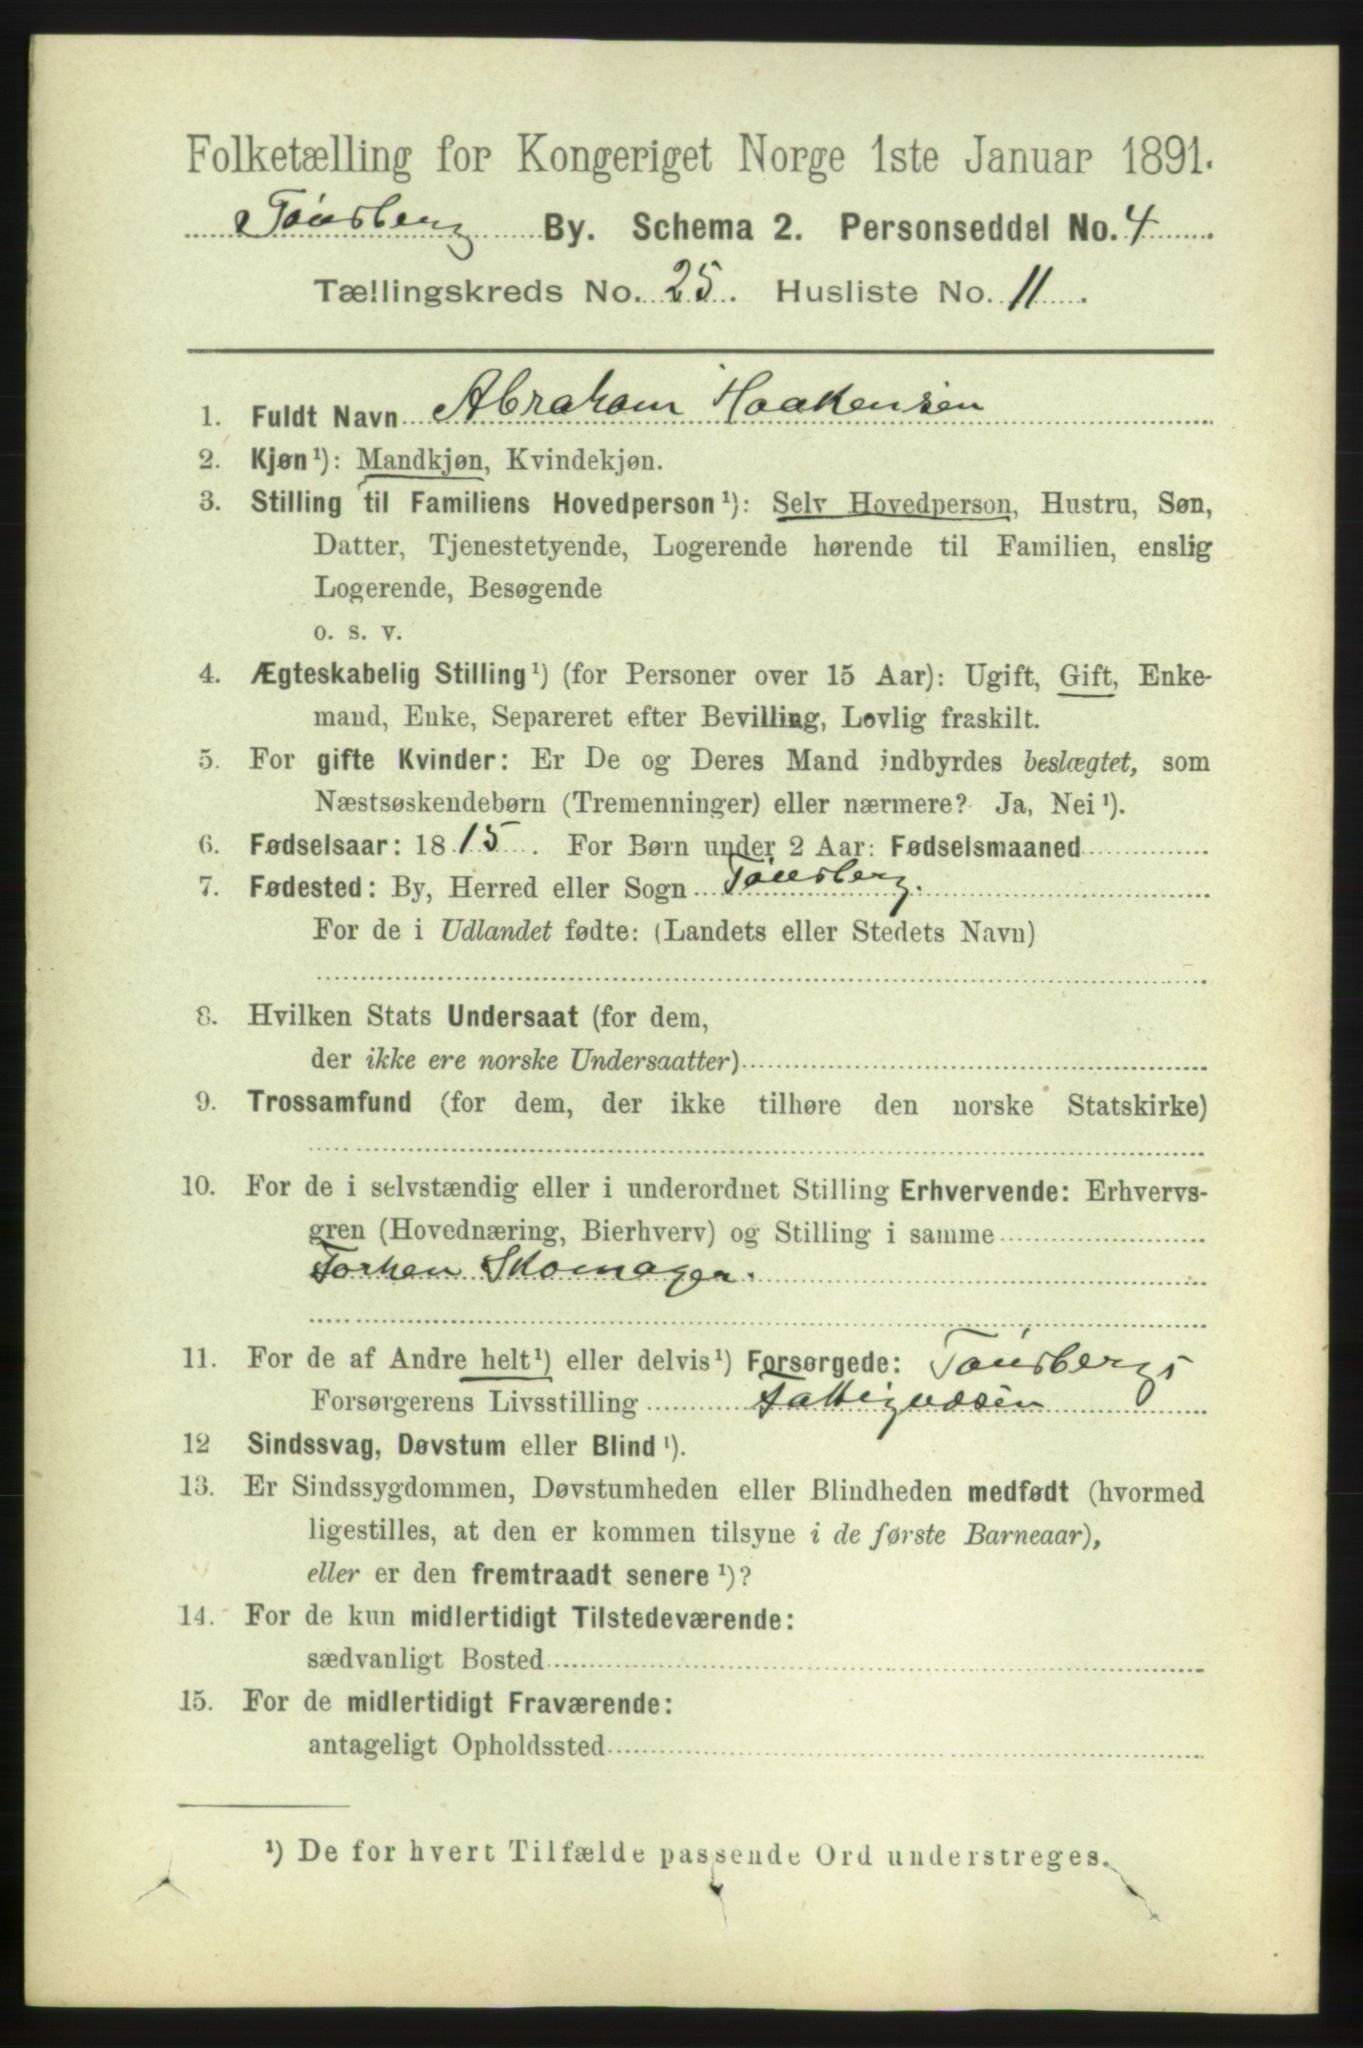 Folketælling for Kongeriget Norge 1ste Januar 1891.
Tönsberg By. Schema 2. Personseddel No. 4
Tællingskreds No. 25. Husliste No. 11.
1. Fuldt Navn Abraham Haakensen
2. Kjøn¹): Mandkjøn, Kvindekjøn.
3. Stilling til Familiens Hovedperson¹): Selv Hovedperson, Hustru, Søn,
Datter, Tjenestetyende, Logerende hørende til Familien, enslig
Logerende, Besøgende
o. s. v.
4. Ægteskabelig Stilling¹) (for Personer over 15 Aar): Ugift, Gift, Enke-
mand, Enke, Separeret efter Bevilling, Lovlig fraskilt.
5. For gifte Kvinder: Er De og Deres Mand indbyrdes beslægtet, som
Næstsøskendebørn (Tremenninger) eller nærmere? Ja, Nei¹).
6. Fødselsaar: 1815. For Børn under 2 Aar: Fødselsmaaned
7. Fødested: By, Herred eller Sogn Tönsberg.
For de i Udlandet fødte: (Landets eller Stedets Navn)
8. Hvilken Stats Undersaat (for dem,
der ikke ere norske Undersaatter)
9. Trossamfund (for dem, der ikke tilhøre den norske Statskirke)
10. For de i selvstændig eller i underordnet Stilling Erhvervende: Erhvervs-
gren (Hovednæring, Bierhverv) og Stilling i samme
Forhen Skomager.
11. For de af Andre helt¹) eller delvis¹) Forsørgede: Tönsbergs
Forsørgerens Livsstilling Fattigvæsen
12 Sindssvag, Døvstum eller Blind¹).
13. Er Sindssygdommen, Døvstumheden eller Blindheden medfødt (hvormed
ligestilles, at den er kommen tilsyne i de første Barneaar),
eller er den fremtraadt senere¹)?
14. For de kun midlertidigt Tilstedeværende:
sædvanligt Bosted
15. For de midlertidigt Fraværende:
antageligt Opholdssted
¹) De for hvert Tilfælde passende Ord understreges.